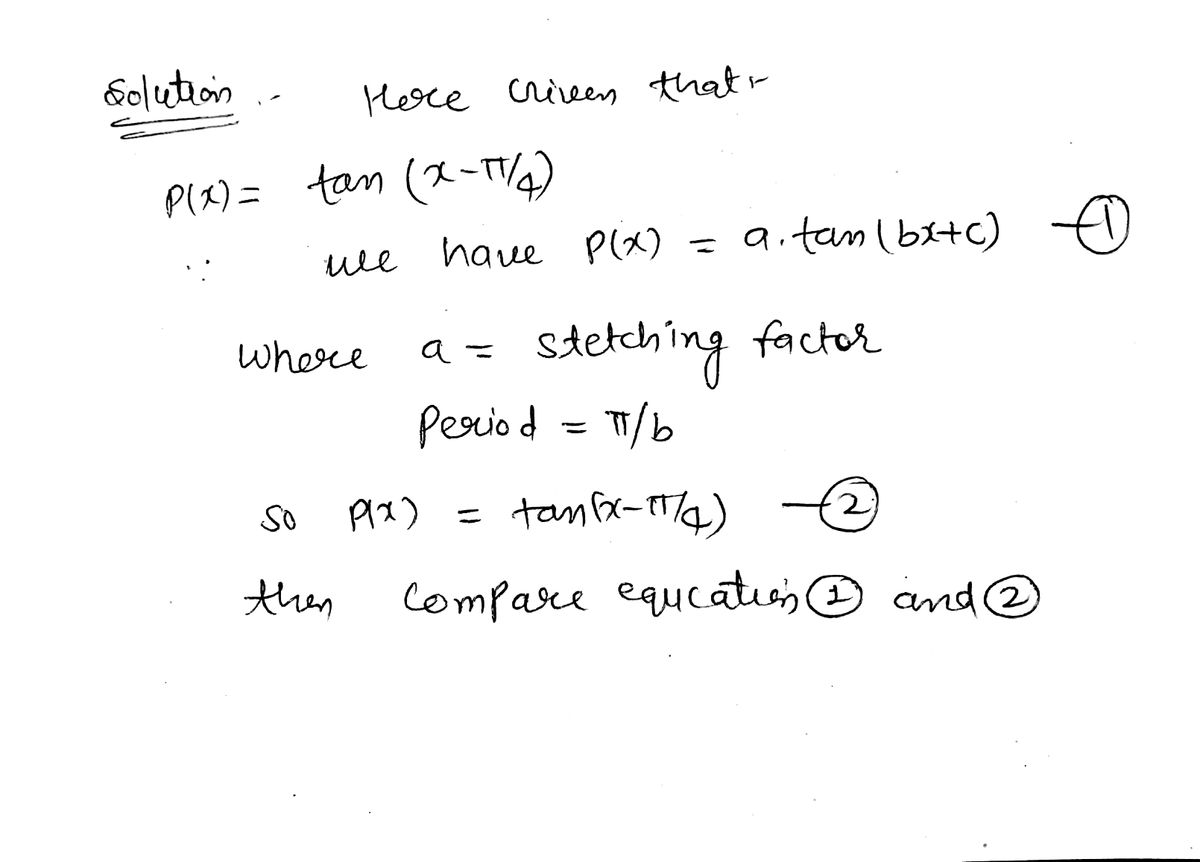 Solution :- Here Given that :-
P(x) = tan (x - π/4)
∵ we have P(x) = a. tan (bx+c) —①
where a = stetching factor
Period = π/b
so P(x) = tan(x-π/4) —②
then Compare equcation ① and ②